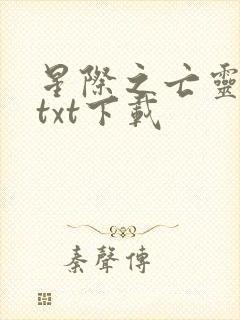 星際之亡靈
txt下載
秦聲傳